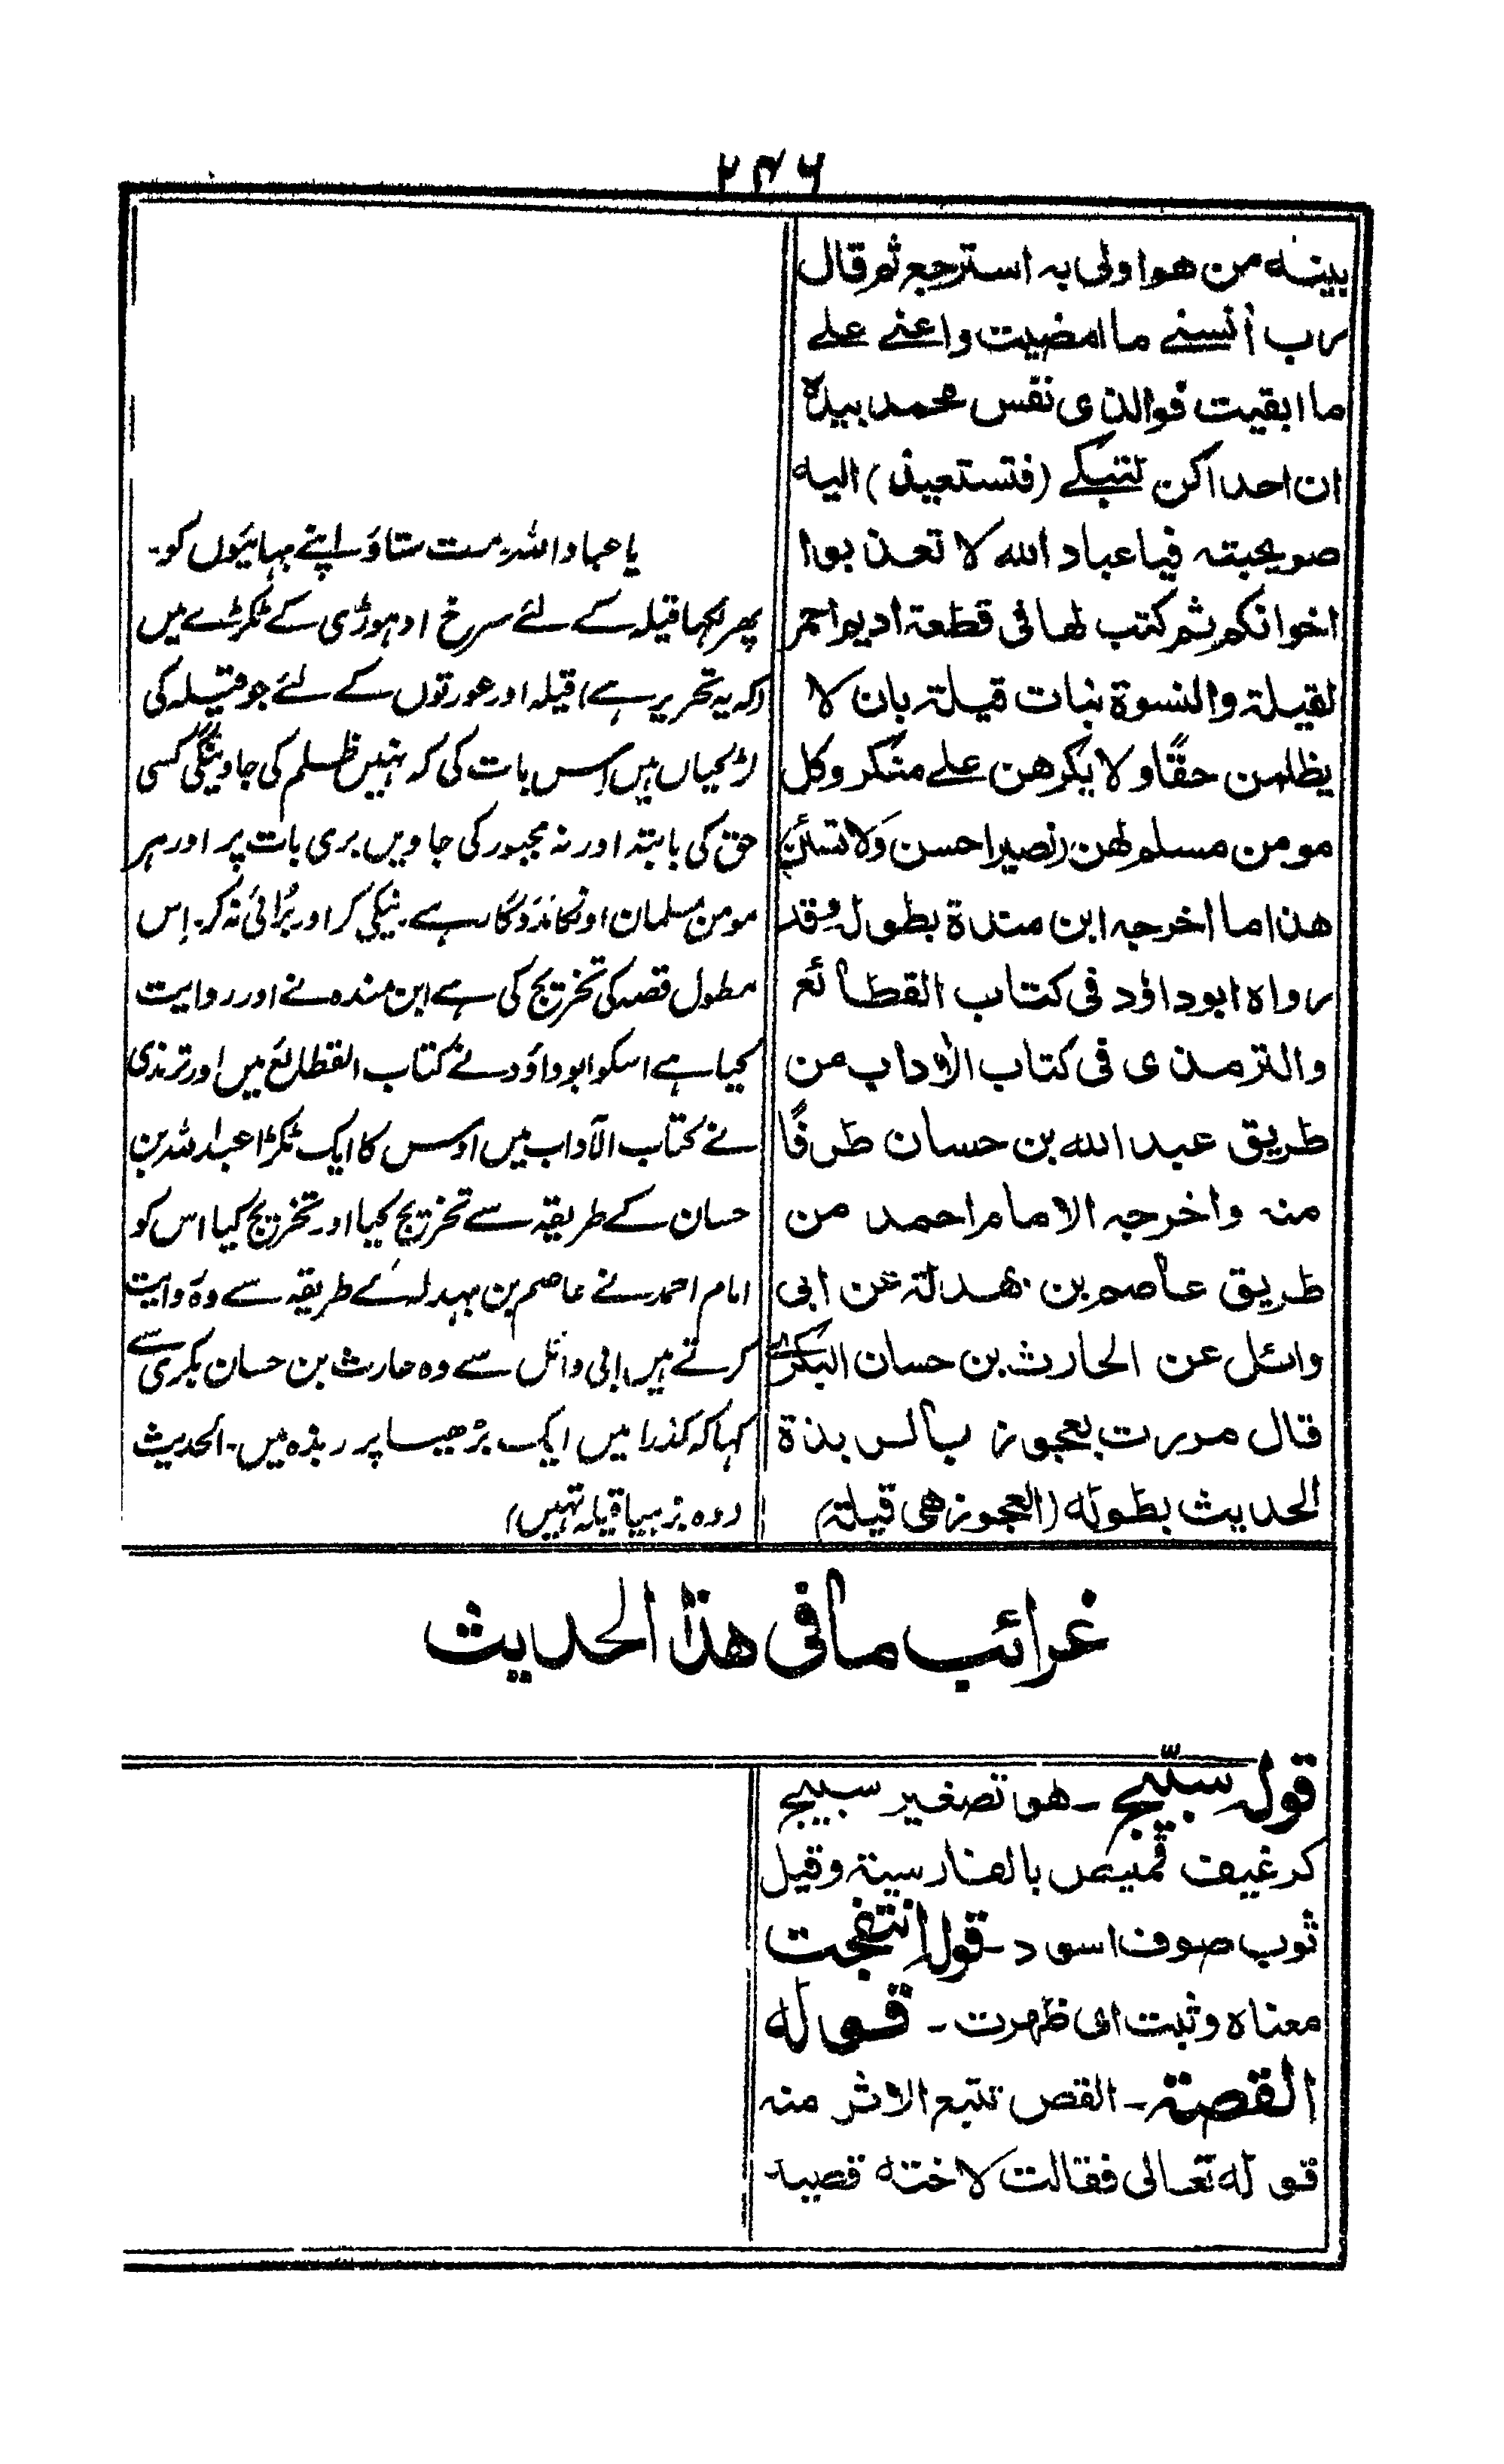 ۲۴۶
بینه من هو اولی به استرجع ثم قال
رب أنسنے ما امضیت واعنے علے
ما ابقیت فوالذی نفس محمد بیدہ
ان احداکن لتبکے (فتستعیذ) الیه
صویحبته فیاعباد الله لا تعذبوا
اخوانکم ثم کتب لها فی قطعة ادیم احمر
لقیلة والنسوة بنات قیلة بان لا
یظلمن حقًا ولا یکرهن علے منکر وکل
مومن مسلم لهن نصیر احسن ولا تسئن
هذا ما اخرجه ابن مندة بطوله وقد
رواه ابوداؤد فی کتاب القطائع
والترمذی فی کتاب الأداب من
طریق عبد الله بن حسان طرفًا
منه واخرجه الامام احمد من
طریق عاصم بن بهدلة عن ابی
وائل عن الحارث بن حسان البکرے
قال مررت بعجوز بالربذة
الحدیث بطوله (العجوز هی قیلة)
یا عباد اللہ۔ مت ستاؤ اپنے بہائیوں کو۔
پھر لکہا قیلہ کے لئے سرخ ادہوڑی کے ٹکڑے میں
(کہ یہ تحریر ہے) قیلہ اور عورتوں کے لئے جو قیلہ کی
لڑکیاں ہیں اِس بات کی کہ نہیں ظلم کی جاوینگی کسی
حق کی بابتہ اور نہ مجبور کی جاویں بری بات پر اور ہر
مومن مسلمان اونکا مددگار ہے۔ نیکی کر اور بُرائی نہ کر۔ اِس
مطول قصہ کی تخریج کی ہے ابن مندہ نے اور روایت
کیا ہے اسکو ابوداؤد نے کتاب القطائع میں اور ترمذی
نے کتاب الآداب میں اوس کا ایک ٹکڑا عبداللہ بن
حسان کے طریقہ سے تخریج کیا اور تخریج کیا اس کو
امام احمد نے عاصم بن بہدلہ کے طریقہ سے وہ روایت
کرتے ہیں ابی وائل سے وہ حارث بن حسان بکری سے
کہا کہ گذرا میں ایک بڑھیا پر ربذہ میں۔ الحدیث
(وہ بڑہیا قیلہ تہیں)
غرائب ما فی هذا الحدیث
قوله سبیّج ۔ هو تصغیر سبیج
کرغیف قمیص بالفارسیة وقیل
ثوب صوف اسود ۔ قوله انتفجت
معناه وثبت ای ظهرت ۔ قوله
القصة ۔ القص تتبع الاثر منه
قوله تعالی فقالت لاخته قصیه